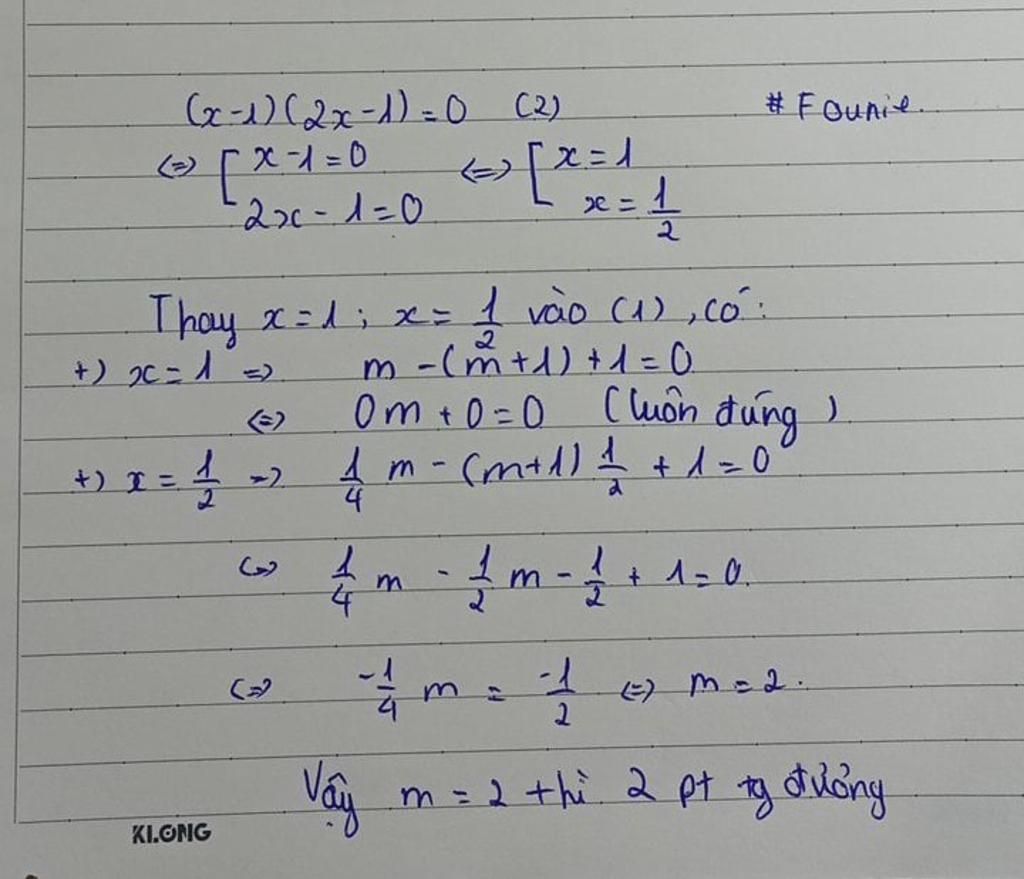 (x-1)(2x-1)=0 (2) # Founie.
<=> [ x-1=0 <=> [ x=1
2x-1=0 x=1/2
Thay x=1; x=1/2 vào (1), có:
+) x=1 => m-(m+1)+1=0
<=> 0m+0=0 (luôn đúng)
+) x=1/2 => 1/4 m-(m+1) 1/2 +1=0
<=> 1/4 m - 1/2 m - 1/2 + 1=0.
<=> -1/4 m = -1/2 <=> m=2.
Vậy m=2 thì 2 pt tg đương
KLONG